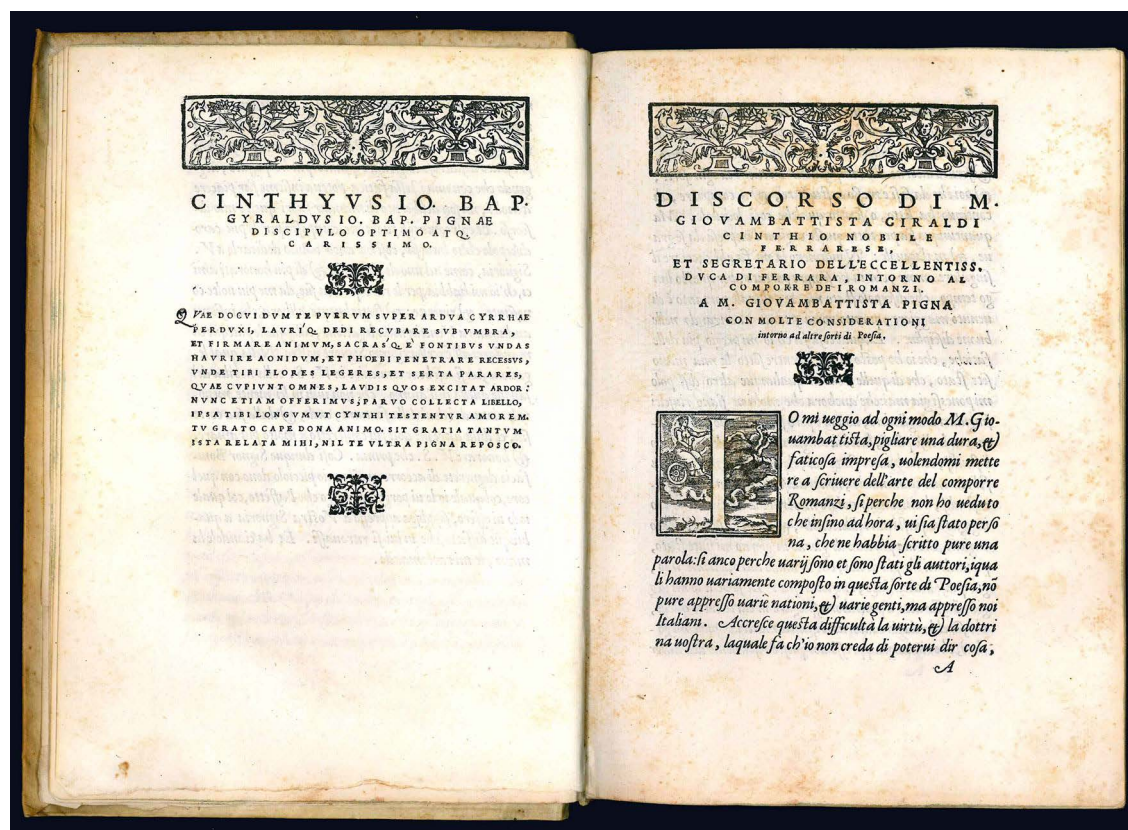 CINTHYVS IO. BAP.
GYRALDVS IO. BAP. PIGNAE
DISCIPVLO OPTIMO ATQ.
CARISSIMO.
QVAE DOCVI DVM TE PVERVM SVPER ARDVA CYRRHAE
PERDVXI, LAVRI'Q. DEDI RECVBARE SVB VMBRA,
ET FIRMARE ANIMVM, SACRAS'Q. E' FONTIBVS VNDAS
HAVRIRE AONIDVM, ET PHOEBI PENETRARE RECESSVS,
VNDE TIBI FLORES LEGERES, ET SERTA PARARES,
QVAE CVPIVNT OMNES, LAVDIS QVOS EXCITAT ARDOR:
NVNC ETIAM OFFERIMVS, PARVO COLLECTA LIBELLO,
IPSA TIBI LONGVM VT CYNTHI TESTENTVR AMOREM.
TV GRATO CAPE DONA ANIMO. SIT GRATIA TANTVM
ISTA RELATA MIHI, NIL TE VLTRA PIGNA REPOSCO.
DISCORSO DI M.
GIOVAMBATTISTA GIRALDI
CINTHIO NOBILE
FERRARESE,
ET SEGRETARIO DELL'ECCELLENTISS.
DVCA DI FERRARA, INTORNO AL
COMPORRE DE I ROMANZI.
A M. GIOVAMBATTISTA PIGNA
CON MOLTE CONSIDERATIONI
intorno ad altre ſorti di Poeſia.
IO mi ueggio ad ogni modo M. Gio-
uambattiſta, pigliare una dura, &
faticoſa impreſa, uolendomi mette
re a ſcriuere dell'arte del comporre
Romanzi, ſi perche non ho ueduto
che inſino ad hora, ui ſia ſtato perſo
na, che ne habbia ſcritto pure una
parola: ſi anco perche uarij ſono et ſono ſtati gli auttori, iqua
li hanno uariamente compoſto in queſta ſorte di Poeſia, nō
pure appreſſo uarie nationi, & uarie genti, ma appreſſo noi
Italiani. Accreſce queſta difficultà la uirtù, & la dottri
na uoſtra, laquale fa ch'io non creda di poterui dir coſa,
A